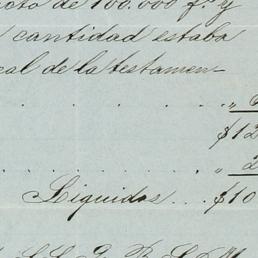 acto de 100.000 f.s y
cantidad estaba
cal de la testamen-
. . . . . . „ 6
$12
. . . . . . „ 2
Liquidos . . . $10